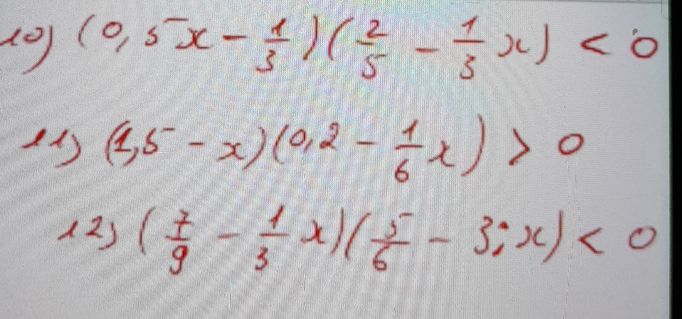 10) (0,5x - 1/3)(2/5 - 1/3 x) < 0
11) (1,5 - x)(0,2 - 1/6 x) > 0
12) (7/9 - 1/3 x)(5/6 - 3:x) < 0